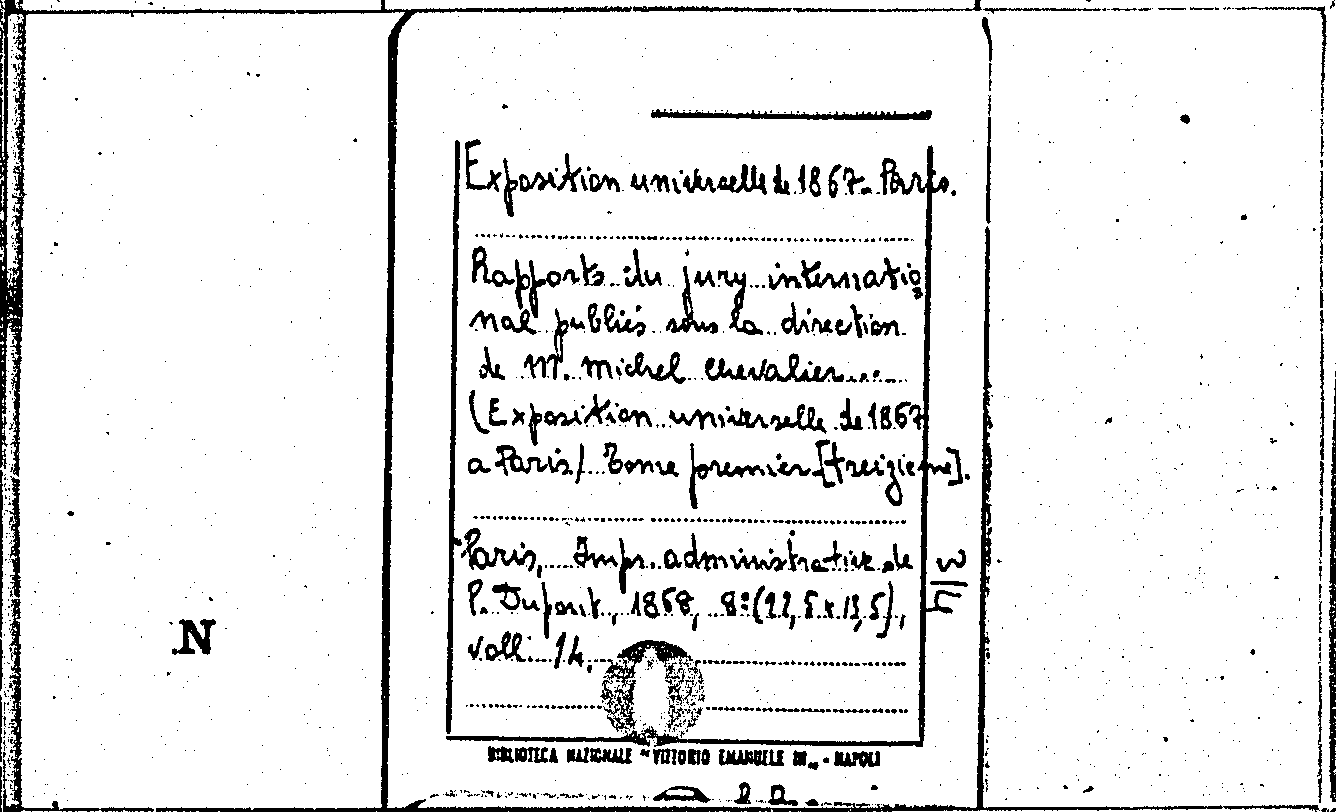 Exposition universelle de 1867. Paris.
Rapports du jury internatio=
nal publiés sous la direction
de M. Michel Chevalier....
(Exposition universelle de 1867
a Paris) Tome premier [treizieme].
Paris, Imp. administrative de
P. Dupont, 1868, 8º (22,5 x 13,5),
voll. 14.
N
BIBLIOTECA NAZIONALE "VITTORIO EMANUELE III" - NAPOLI